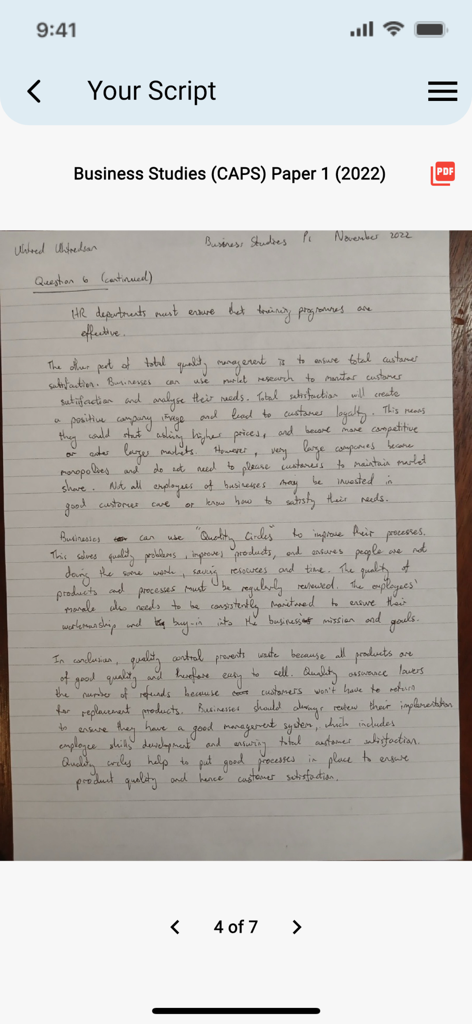 9:41
Your Script
Business Studies (CAPS) Paper 1 (2022)
PDF
Business Studies P1 November 2022
Question 6 (continued)
HR departments must ensure that training programmes are
effective.
The other part of total quality management is to ensure total customer
satisfaction. Businesses can use market research to monitor customer
satisfaction and analyse their needs. Total satisfaction will create
a positive company image and lead to customer loyalty. This means
they could start asking higher prices, and become more competitive
or enter larger markets. However, very large companies become
monopolies and do not need to please customers to maintain market
share. Not all employees of businesses may be invested in
good customer care or know how to satisfy their needs.
Businesses can use "Quality Circles" to improve their processes.
This solves quality problems, improves products, and ensures people are not
doing the same work, saving resources and time. The quality of
products and processes must be regularly reviewed. The employees'
morale also needs to be consistently monitored to ensure their
workmanship and buy-in into the business mission and goals.
In conclusion, quality control prevents waste because all products are
of good quality and therefore easy to sell. Quality assurance lowers
the number of refunds because customers won't have to return
for replacement products. Businesses should always review their implementation
to ensure they have a good management system, which includes
employee skills development and ensuring total customer satisfaction.
Quality circles help to put good processes in place to ensure
product quality and hence customer satisfaction.
4 of 7